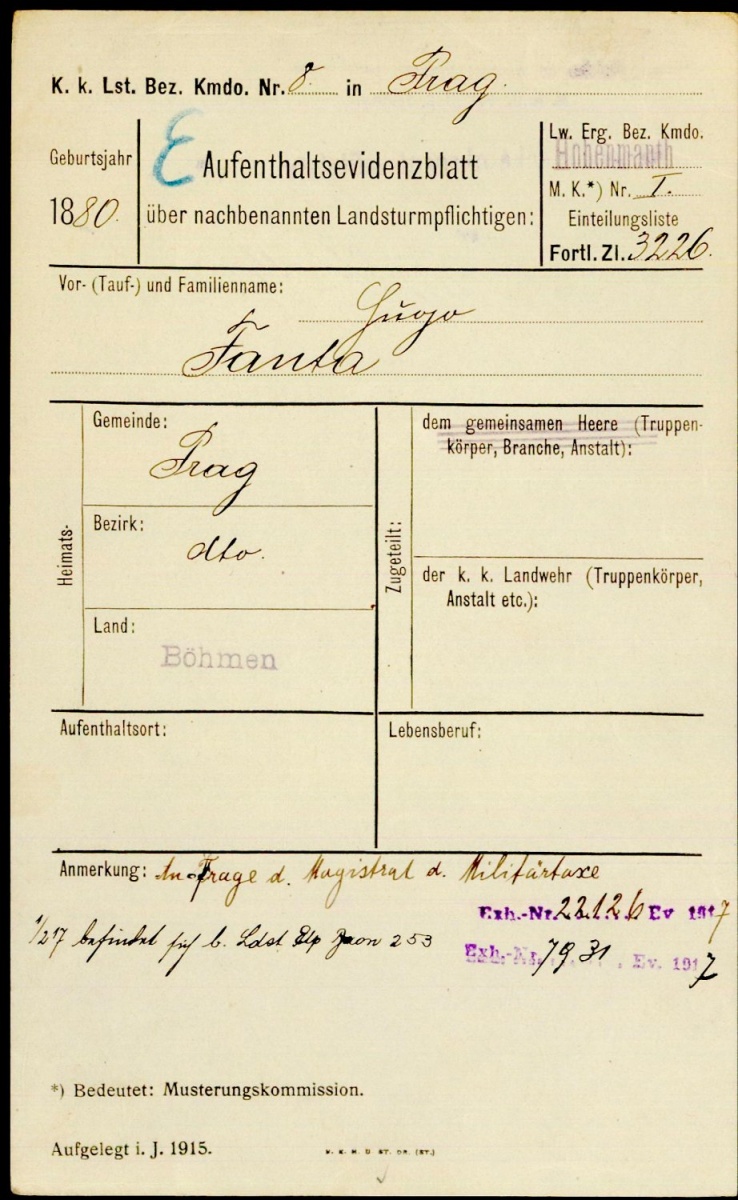 K. k. Lst. Bez. Kmdo. Nr. 8. in Prag.
Geburtsjahr
1880.
E Aufenthaltsevidenzblatt
über nachbenannten Landsturmpflichtigen:
Lw. Erg. Bez. Kmdo.
Hohenmauth
M. K.*) Nr. I.
Einteilungsliste
Fortl. Zl. 3226.
Vor- (Tauf-) und Familienname:
Hugo
Fanta
Heimats-
Gemeinde:
Prag
Bezirk:
dto.
Land:
Böhmen
Zugeteilt:
dem gemeinsamen Heere (Truppen-
körper, Branche, Anstalt):
der k. k. Landwehr (Truppenkörper,
Anstalt etc.):
Aufenthaltsort:
Lebensberuf:
Anmerkung: Anfrage d. Magistrat d. Militärtaxe
Exh.-Nr. 22126 Ev 1917
1/2 17 befindet sich b. Ldst. Baon 253
Exh.-Nr. 7931 Ev. 1917
*) Bedeutet: Musterungskommission.
Aufgelegt i. J. 1915.